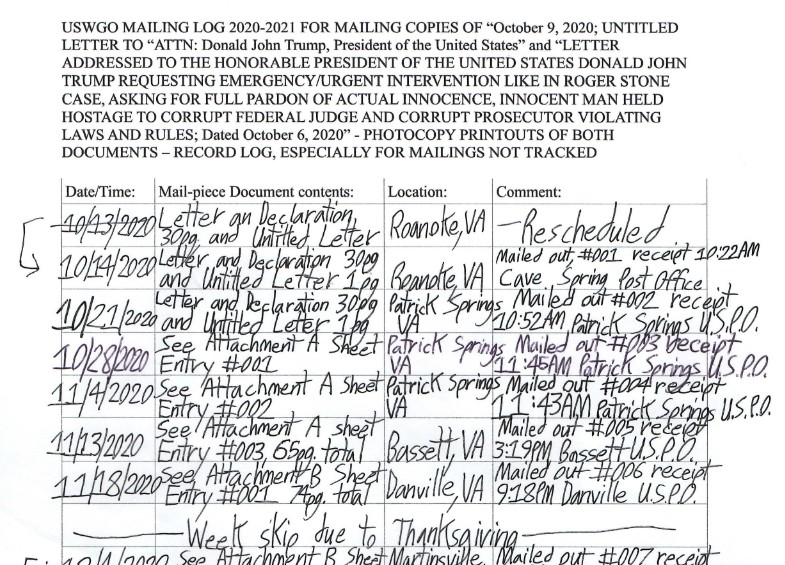 USWGO MAILING LOG 2020-2021 FOR MAILING COPIES OF “October 9, 2020; UNTITLED
LETTER TO “ATTN: Donald John Trump, President of the United States” and “LETTER
ADDRESSED TO THE HONORABLE PRESIDENT OF THE UNITED STATES DONALD JOHN
TRUMP REQUESTING EMERGENCY/URGENT INTERVENTION LIKE IN ROGER STONE
CASE, ASKING FOR FULL PARDON OF ACTUAL INNOCENCE, INNOCENT MAN HELD
HOSTAGE TO CORRUPT FEDERAL JUDGE AND CORRUPT PROSECUTOR VIOLATING
LAWS AND RULES; Dated October 6, 2020” - PHOTOCOPY PRINTOUTS OF BOTH
DOCUMENTS – RECORD LOG, ESPECIALLY FOR MAILINGS NOT TRACKED
Date/Time: Mail-piece Document contents: Location: Comment:
10/13/2020 Letter an Declaration, Roanoke, VA —Rescheduled
30pg and Untitled Letter
10/14/2020 Letter and Declaration 30pg Roanoke, VA Mailed out #001 receipt 10:22AM
and Untitled Letter 1pg Cave Spring Post Office
10/21/2020 Letter and Declaration 30pg Patrick Springs Mailed out #002 receipt
and Untitled Letter 1pg VA 10:52AM Patrick Springs U.S.P.O.
10/28/2020 See Attachment A Sheet Patrick Springs Mailed out #003 receipt
Entry #001 VA 11:45AM Patrick Springs U.S.P.O.
11/4/2020 See Attachment A Sheet Patrick Springs Mailed out #004 receipt
Entry #002 VA 11:43AM Patrick Springs U.S.P.O.
11/13/2020 See Attachment A sheet Bassett, VA Mailed out #005 receipt
Entry #003, 65pg. total 3:19PM Bassett U.S.P.O.
11/18/2020 See Attachment B Sheet Danville, VA Mailed out #006 receipt
Entry #001 74pg. total 9:18PM Danville U.S.P.O.
—Week skip due to Thanksgiving—
See Attachment B Sheet Martinsville, Mailed out #007 receipt